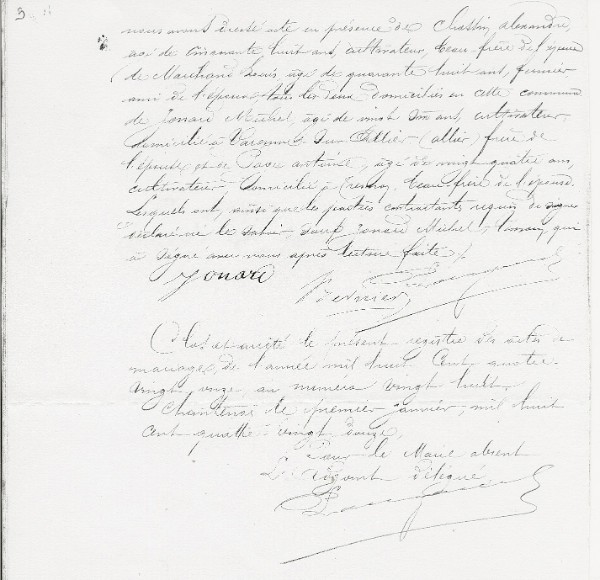 3
nous avons dressé acte en présence de Chassin, Alexandre,
agé de cinquante huit ans, cultivateur, beau-frère de l'époux
de Marchand Louis agé de quarante huit ans, fermier
ami de l'époux, tous les deux domiciliés en cette commune
de Jonard Michel, agé de vingt ans, cultivateur,
domicilié à Varennes-sur-Allier (allier) frère de
l'épouse et de antoine, agé de vingt quatre ans,
cultivateur domicilié à beau frère de l'épouse.
Lesquels ont, ainsi que les parties contractantes, requis de signer
déclaré ne le savoir, sauf Jonard Michel, témoin, qui
a signé avec nous après lecture faite /.
Jonard
Bernier
Clos et arrêté le présent registre des actes de
mariages, de l'année mil huit cent quatre
vingt onze, au numéro vingt huit,
le premier janvier, mil huit
cent quatre vingt douze,
Pour le Maire absent
L'Adjoint délégué